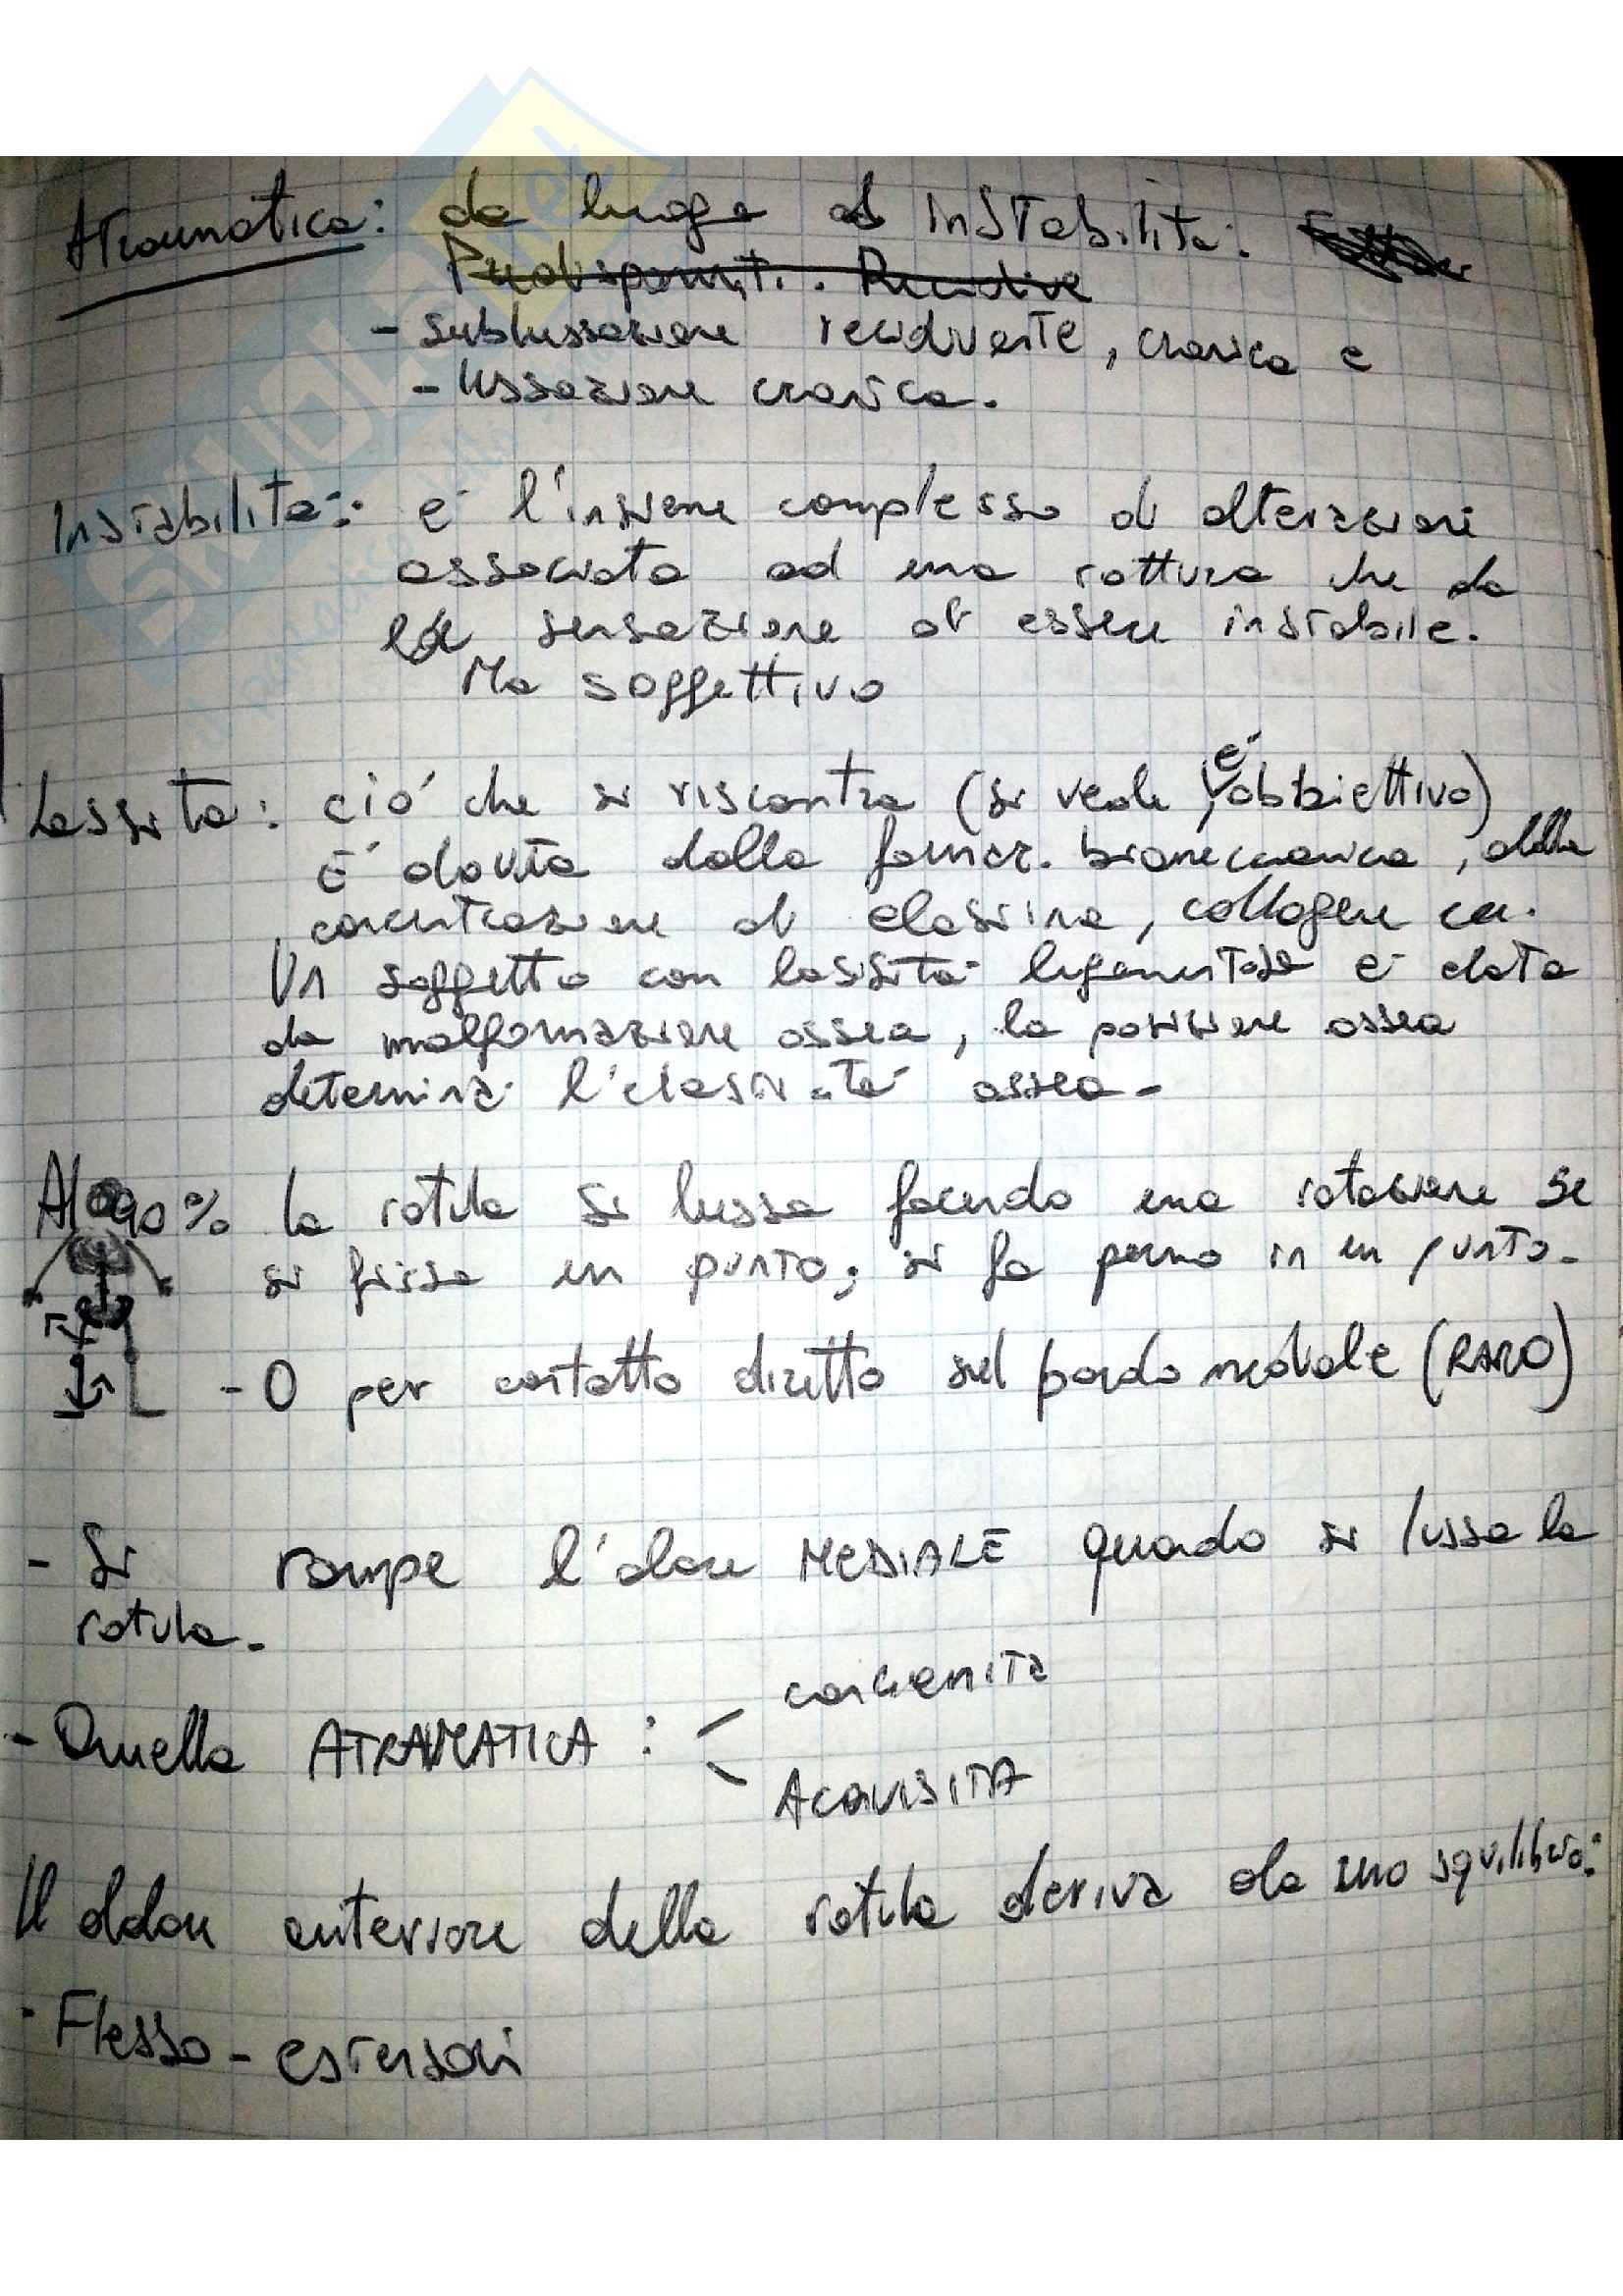 Atraumatica: da luogo ad instabilità:
Predisponenti. Recidive
- sublussazione recidivante, cronica e
- lussazione cronica.
Instabilità: è l'insieme complesso di alterazioni
associata ad una rottura che da
la sensazione di essere instabile.
Ma soggettivo
Lassità: ciò che si riscontra (si vede, è obbiettivo)
È dovuta dalla formaz. biomeccanica, della
concentrazione di elastina, collagene ecc.
Un soggetto con lassità legamentose è data
da malformazione ossea, la posizione ossea
determina l'elasticità ossea-
Al 90% la rotula si lussa facendo una rotazione se
si fissa un punto; si fa perno in un punto-
- O per contatto diretto sul bordo mediale (RARO)
- Si rompe l'alare MEDIALE quando si lussa la
rotula-
- Quella ATRAMATICA : congenita
Acquisita
Il dolore anteriore della rotula deriva da uno squilibrio:
- Flesso-estensori
SKUOLA.net